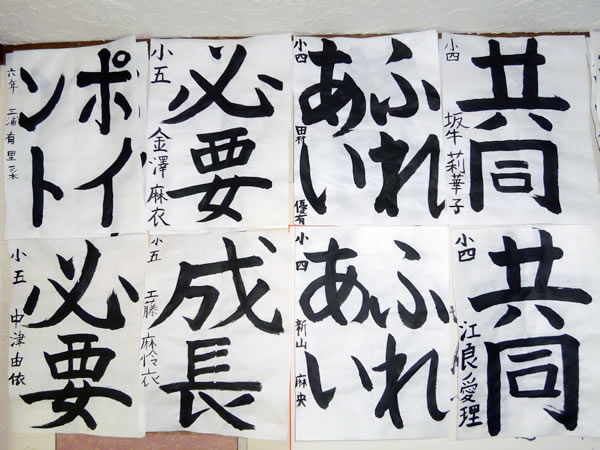 共同
小四 坂牛莉華子
ふれ
あい
小四 田村 優有
必要
小五 金澤麻衣
ポイ
ント
六年 三浦有里菜
共同
小四 江良愛理
ふれ
あい
小四 新山 麻央
成長
小五 工藤麻怜衣
必要
小五 中津由依